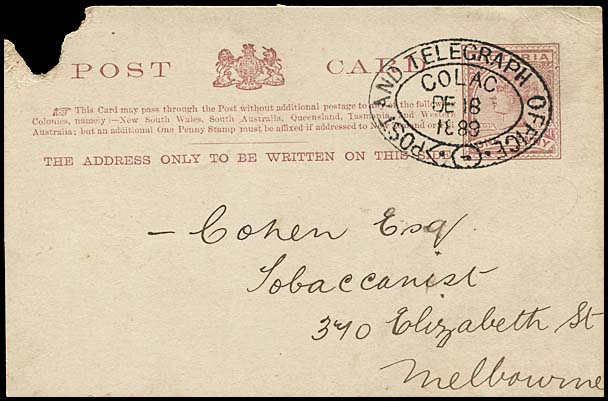 POST CARD
☞ This Card may pass through the Post without additional postage to of the following
Colonies, namely:—New South Wales, South Australia, Queensland, Tasmania and Western
Australia; but an additional One Penny Stamp must be affixed if addressed to New
THE ADDRESS ONLY TO BE WRITTEN ON THIS SIDE
POST AND TELEGRAPH OFFICE
COLAC
DE 18
1889
— Cohen Esq
Tobaccanist
340 Elizabeth St
Melbourne